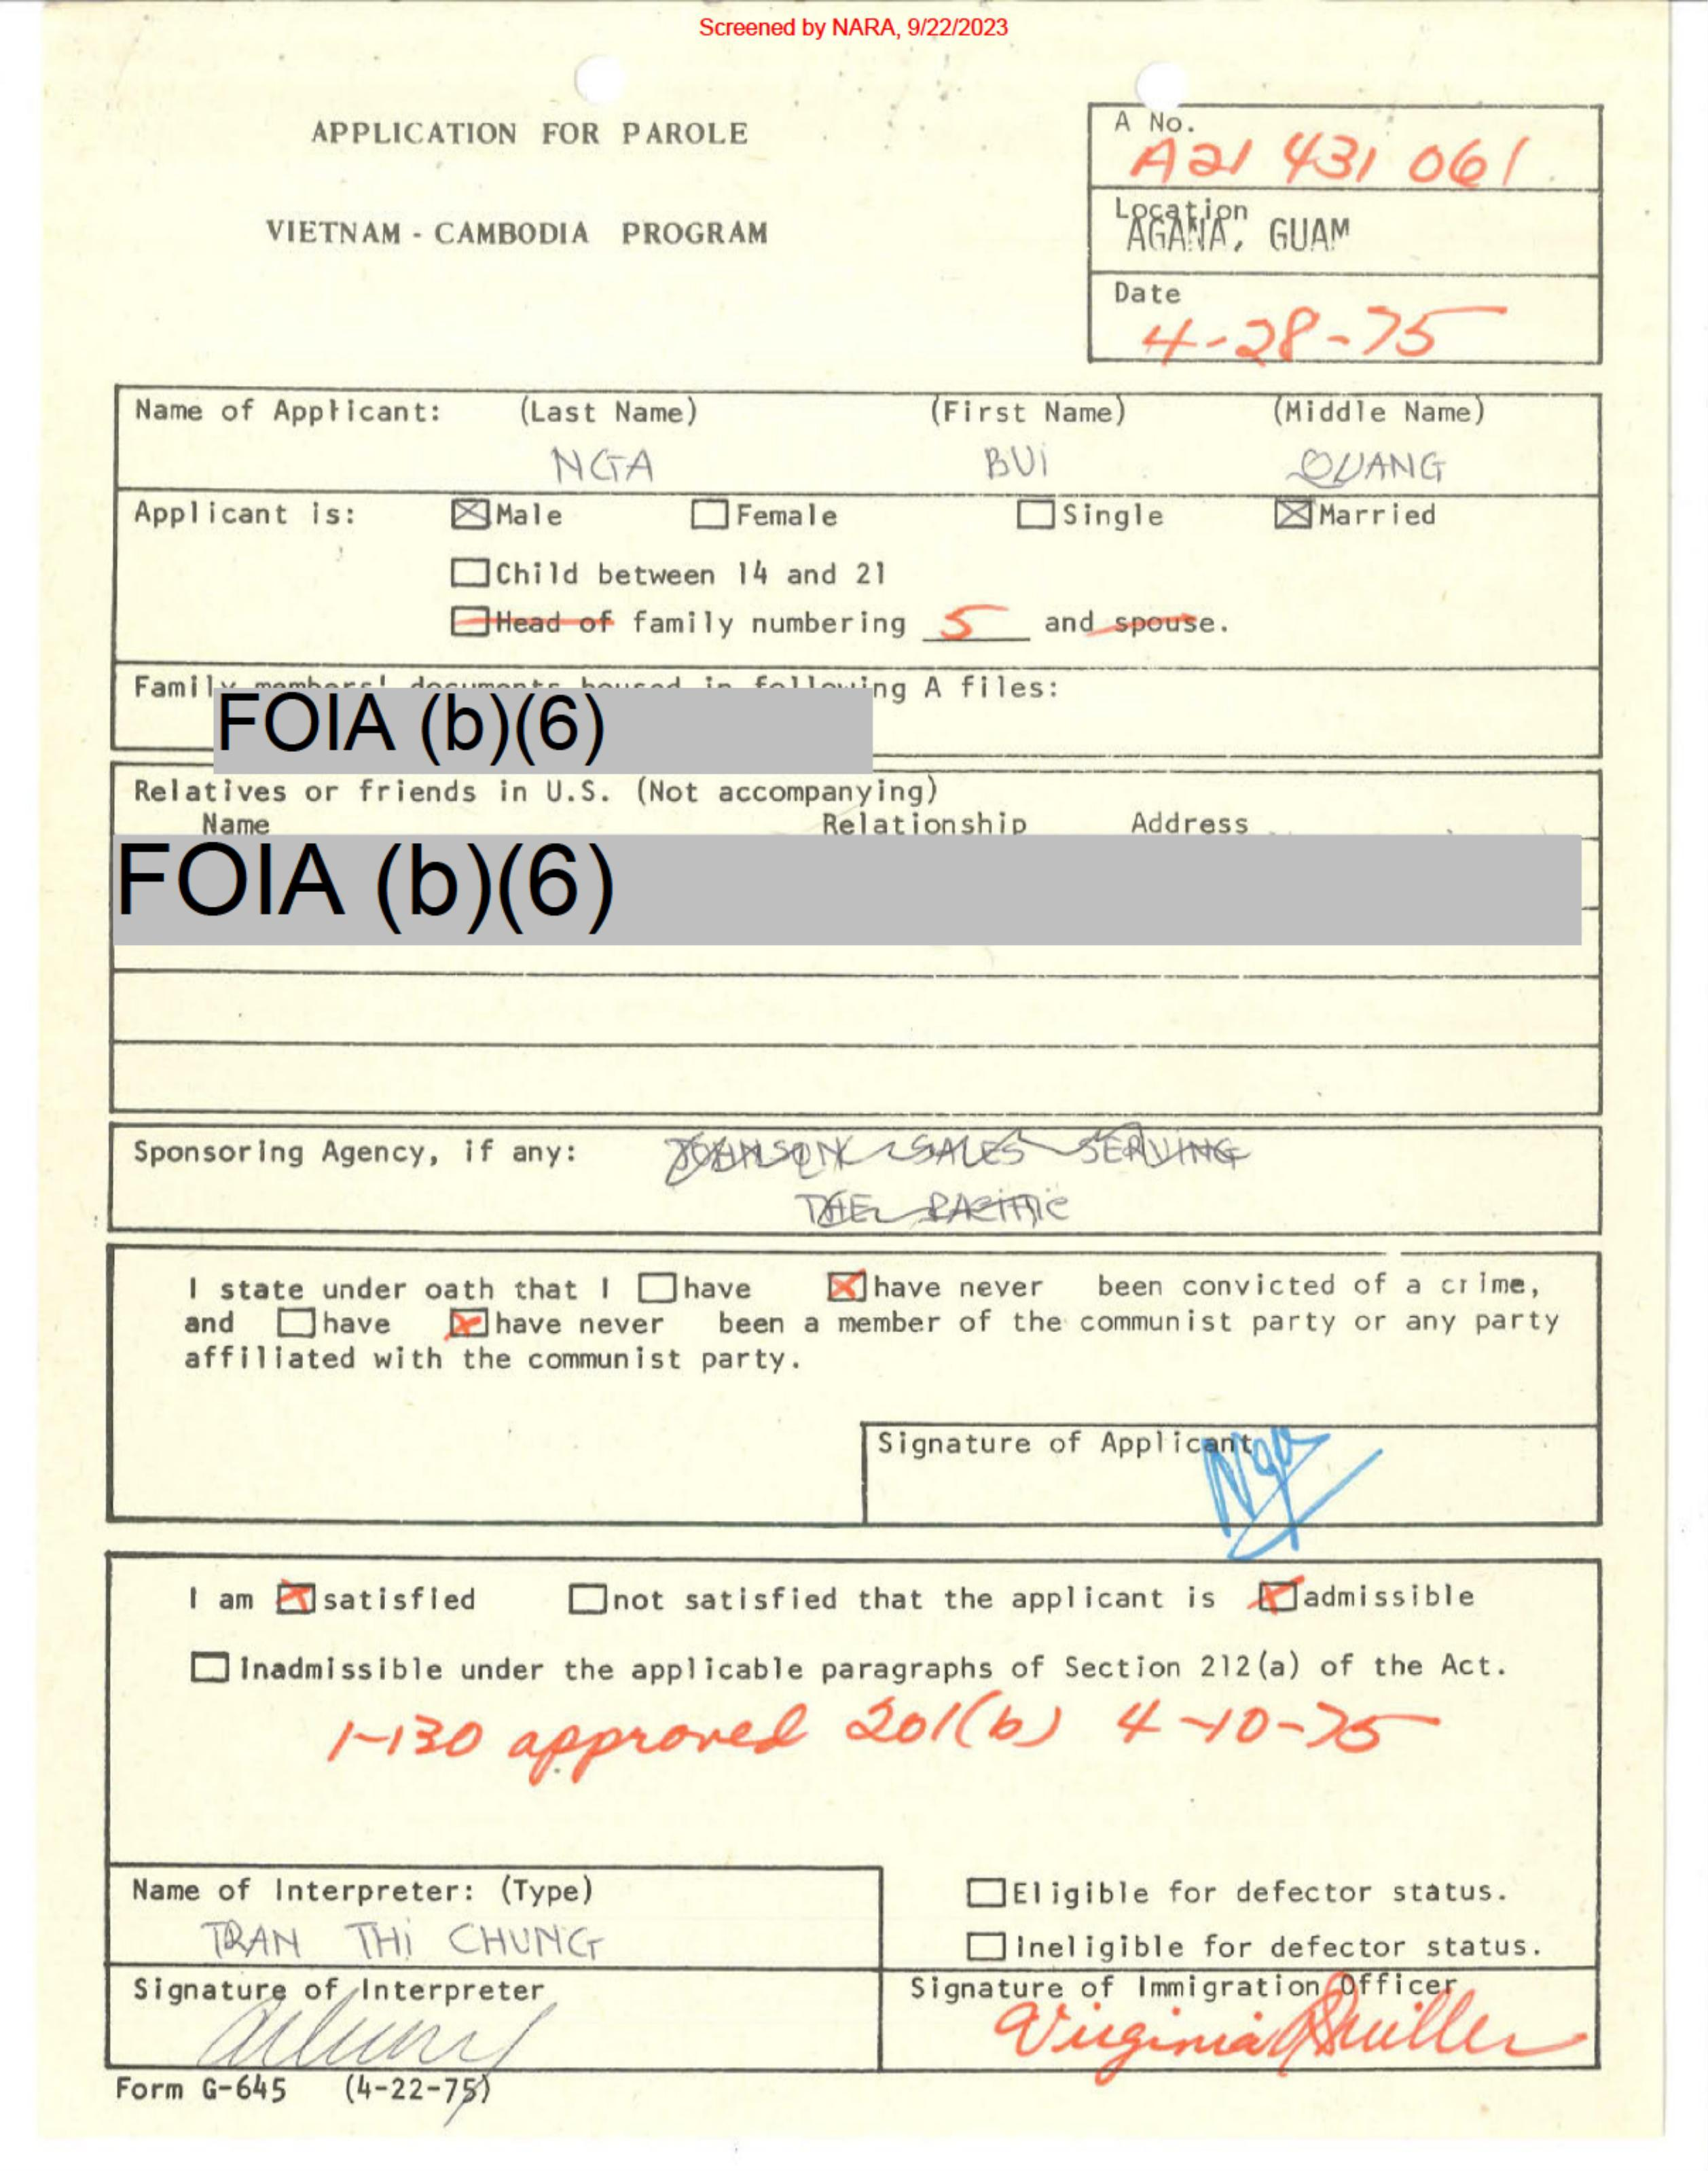 Screened by NARA, 9/22/2023
APPLICATION FOR PAROLE
VIETNAM - CAMBODIA PROGRAM
A No.
A21 431 061
Location
AGANA, GUAM
Date
4-28-75
Name of Applicant: (Last Name) (First Name) (Middle Name)
NGA BUI QUANG
Applicant is: Male Female Single Married
Child between 14 and 21
Head of family numbering 5 and spouse.
Family members' documents housed in following A files:
FOIA (b)(6)
Relatives or friends in U.S. (Not accompanying)
Name Relationship Address
FOIA (b)(6)
Sponsoring Agency, if any: JOHNSON SALES SERVING
THE PACIFIC
I state under oath that I have have never been convicted of a crime,
and have have never been a member of the communist party or any party
affiliated with the communist party.
Signature of Applicant
Nga
I am satisfied not satisfied that the applicant is admissible
inadmissible under the applicable paragraphs of Section 212(a) of the Act.
I-130 approved 201(b) 4-10-75
Name of Interpreter: (Type)
TRAN THI CHUNG
Eligible for defector status.
Ineligible for defector status.
Signature of Interpreter
Signature of Immigration Officer
Virginia
Form G-645 (4-22-75)